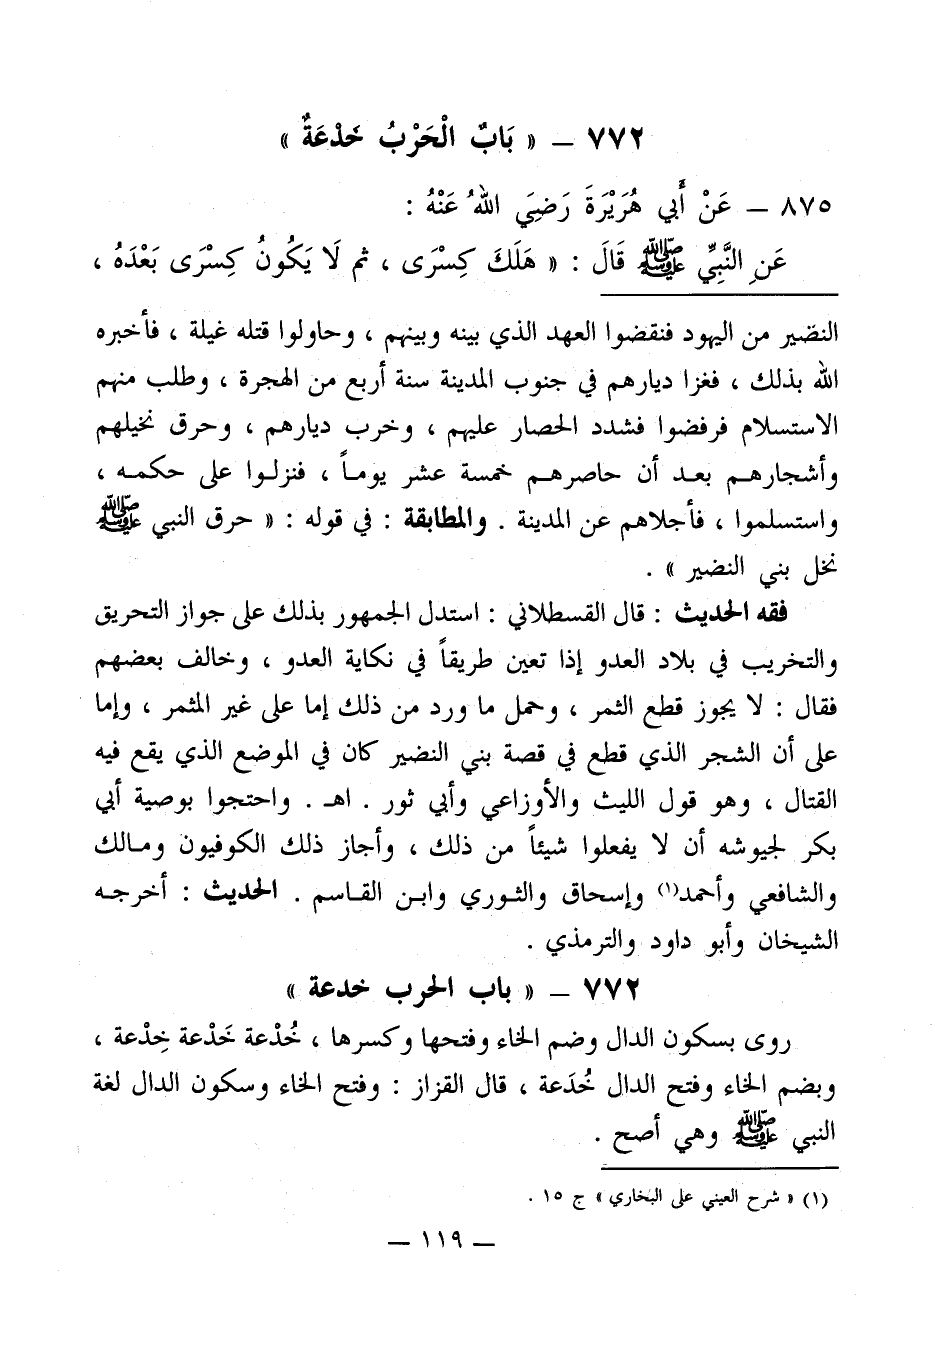 ٧٧٢ – « بَابٌ الْحَرْبُ خَدْعَةٌ »
٨٧٥ – عَنْ أَبي هُرَيْرَةَ رَضِيَ اللهُ عَنْهُ :
عَنِ النَّبِيِّ ﷺ قَالَ : « هَلَكَ كِسْرَى ، ثم لَا يَكُونُ كِسْرَى بَعْدَهُ ،
النضير من اليهود فنقضوا العهد الذي بينه وبينهم ، وحاولوا قتله غيلة ، فأخبره
الله بذلك ، فغزا ديارهم في جنوب المدينة سنة أربع من الهجرة ، وطلب منهم
الاستسلام فرفضوا فشدد الحصار عليهم ، وخرب ديارهم ، وحرق نخيلهم
وأشجارهم بعد أن حاصرهم خمسة عشر يوماً ، فنزلوا على حكمه ،
واستسلموا ، فأجلاهم عن المدينة . والمطابقة : في قوله : « حرق النبي ﷺ
نخل بني النضير » .
فقه الحديث : قال القسطلاني : استدل الجمهور بذلك على جواز التحريق
والتخريب في بلاد العدو إذا تعين طريقاً في نكاية العدو ، وخالف بعضهم
فقال : لا يجوز قطع الثمر ، وحمل ما ورد من ذلك إما على غير المثمر ، وإما
على أن الشجر الذي قطع في قصة بني النضير كان في الموضع الذي يقع فيه
القتال ، وهو قول الليث والأوزاعي وأبي ثور . اهـ . واحتجوا بوصية أبي
بكر لجيوشه أن لا يفعلوا شيئاً من ذلك ، وأجاز ذلك الكوفيون ومالك
والشافعي وأحمد(١) وإسحاق والثوري وابن القاسم . الحديث : أخرجه
الشيخان وأبو داود والترمذي .
٧٧٢ – « باب الحرب خدعة »
روى بسكون الدال وضم الخاء وفتحها وكسرها ، خُدْعة خَدْعة خِدْعة ،
وبضم الخاء وفتح الدال خُدَعة ، قال القزاز : وفتح الخاء وسكون الدال لغة
النبي ﷺ وهي أصح .
(١) « شرح العيني على البخاري » ج ١٥ .
– ١١٩ –